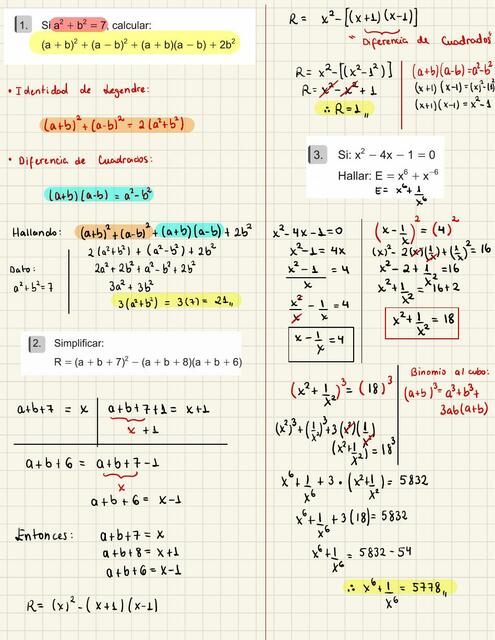 1. Si a² + b² = 7, calcular:
(a + b)² + (a − b)² + (a + b)(a − b) + 2b²
• Identidad de Legendre:
(a+b)² + (a-b)² = 2(a²+b²)
• Diferencia de Cuadrados:
(a+b)(a-b) = a²-b²
Hallando: (a+b)² + (a-b)² + (a+b)(a-b) + 2b²
2(a²+b²) + (a²-b²) + 2b²
Dato: 2a² + 2b² + a² - b² + 2b²
a²+b²=7 3a² + 3b²
3(a²+b²) = 3(7) = 21,,
2. Simplificar:
R = (a + b + 7)² − (a + b + 8)(a + b + 6)
a+b+7 = x a+b+7+1 = x+1
x +1
a+b+6 = a+b+7-1
x
a+b+6 = x-1
Entonces: a+b+7 = x
a+b+8 = x+1
a+b+6 = x-1
R = (x)² - (x+1)(x-1)
R = x² - [(x+1)(x-1)]
"Diferencia de Cuadrados"
R = x² - [(x²-1²)] (a+b)(a-b)=a²-b²
R = x² - x² + 1 (x+1)(x-1)=(x)²-(1)²
∴ R = 1,, (x+1)(x-1) = x²-1
3. Si: x² − 4x − 1 = 0
Hallar: E = x⁶ + x⁻⁶
E = x⁶ + 1/x⁶
x²-4x-1=0
x²-1 = 4x
x²-1/x = 4
x²/x - 1/x = 4
x - 1/x = 4
(x - 1/x)² = (4)²
(x)² - 2(x)(1/x) + (1/x)² = 16
x² - 2 + 1/x² = 16
x² + 1/x² = 16+2
x² + 1/x² = 18
(x² + 1/x²)³ = (18)³
Binomio al cubo:
(a+b)³ = a³+b³+
3ab(a+b)
(x²)³ + (1/x²)³ + 3(x²)(1/x²)
(x² + 1/x²) = 18³
x⁶ + 1/x⁶ + 3 · (x² + 1/x²) = 5832
x⁶ + 1/x⁶ + 3(18) = 5832
x⁶ + 1/x⁶ = 5832 - 54
∴ x⁶ + 1/x⁶ = 5778,,